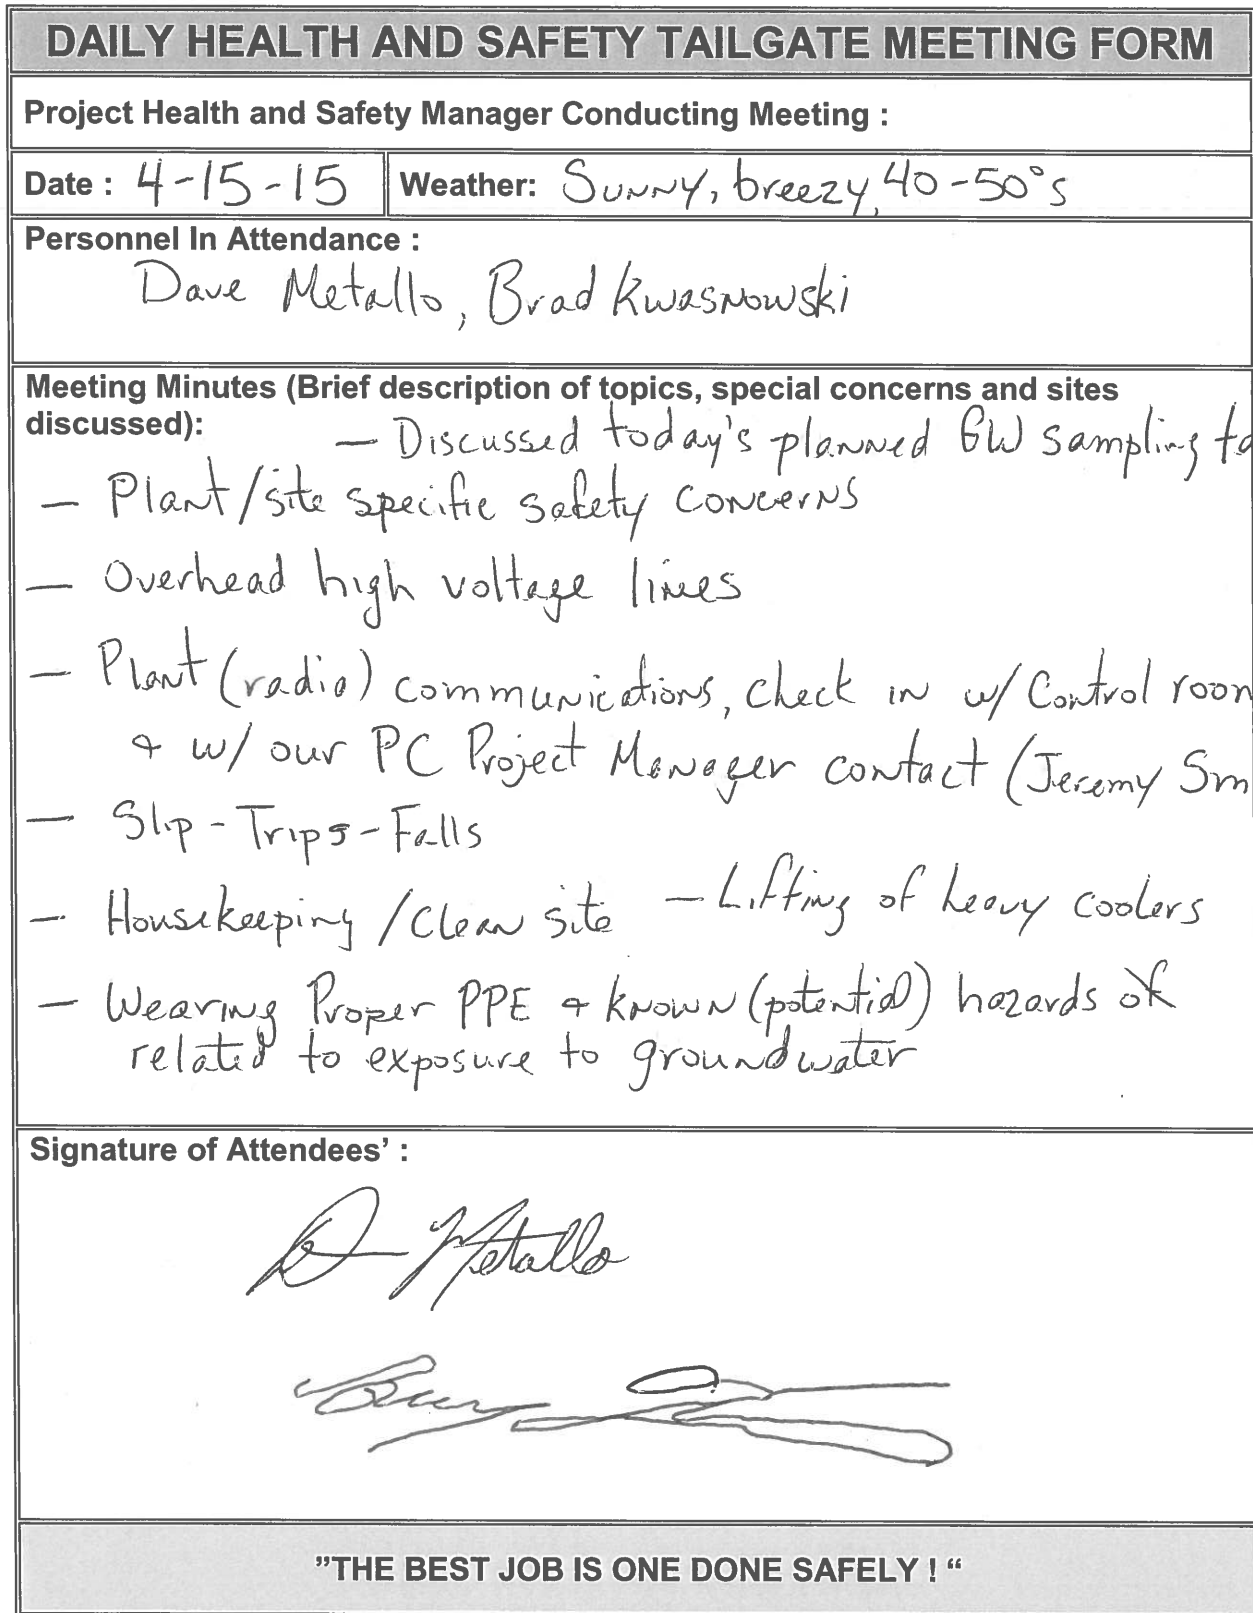 DAILY HEALTH AND SAFETY TAILGATE MEETING FORM
Project Health and Safety Manager Conducting Meeting :
Date : 4-15-15 Weather: Sunny, breezy, 40-50°s
Personnel In Attendance :
Dave Metallo, Brad Kwasnowski
Meeting Minutes (Brief description of topics, special concerns and sites
discussed): — Discussed today's planned GW sampling
— Plant/site specific safety concerns
— Overhead high voltage lines
— Plant (radio) communications, check in w/ Control room
& w/ our PC Project Manager contact (Jeremy Sm
— Slip-Trips-Falls
— Housekeeping /Clean site — Lifting of heavy coolers
— Wearing Proper PPE & known (potential) hazards of
related to exposure to groundwater
Signature of Attendees' :
D Metallo
”THE BEST JOB IS ONE DONE SAFELY ! “